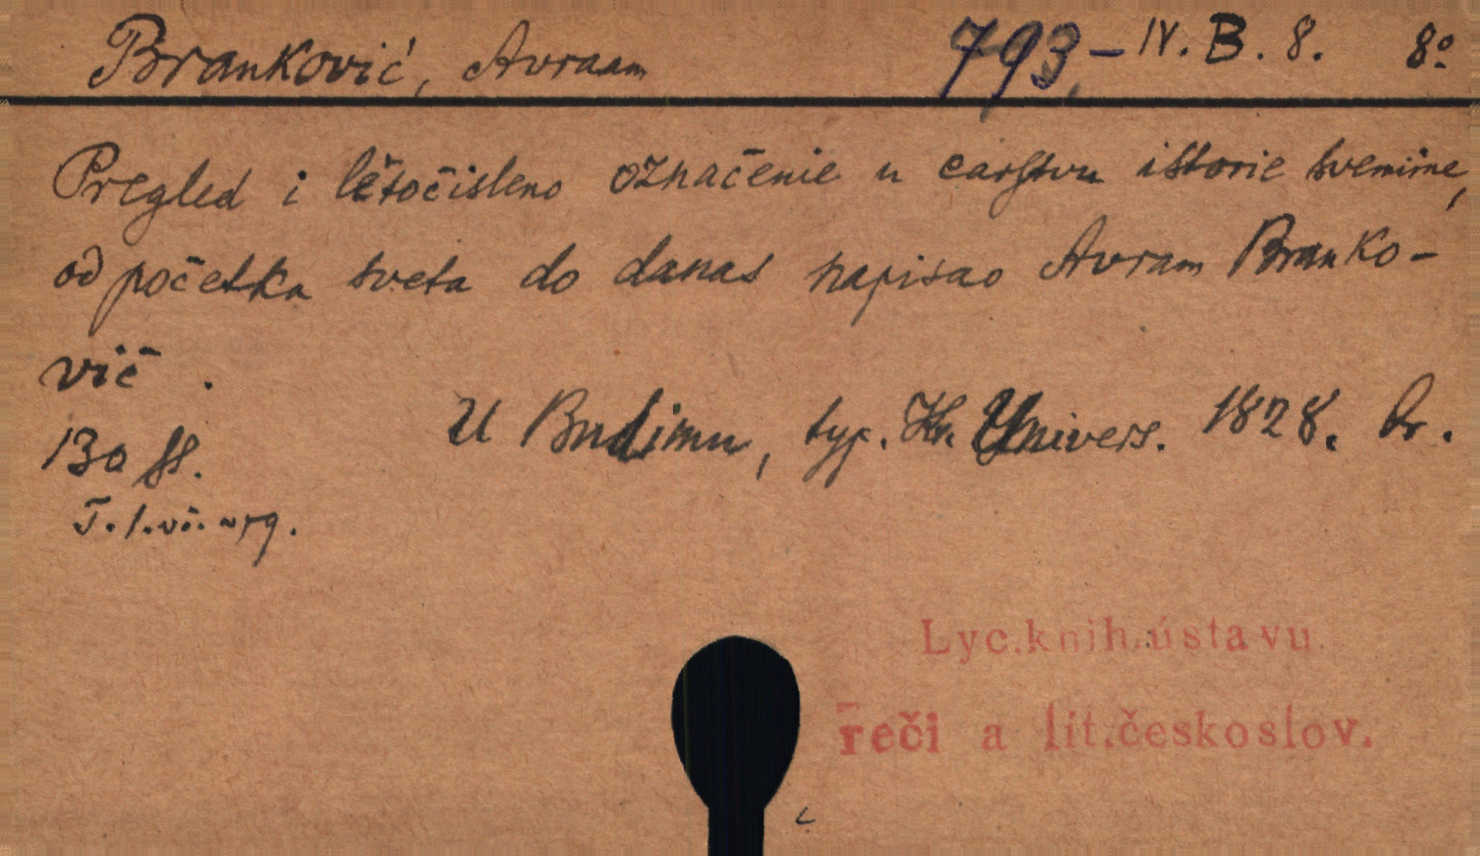 Branković, Avraam 793 – IV. B. 8. 8º
Pregled i lětočisleno označenie u carstvu istorie svemirne,
od početka sveta do danas napisao Avram Branko-
vič.
U Budimu, typ. Kr. Univers. 1828. Br.
130 ss.
Lyc.knih.ústavu
řeči a lit.českoslov.